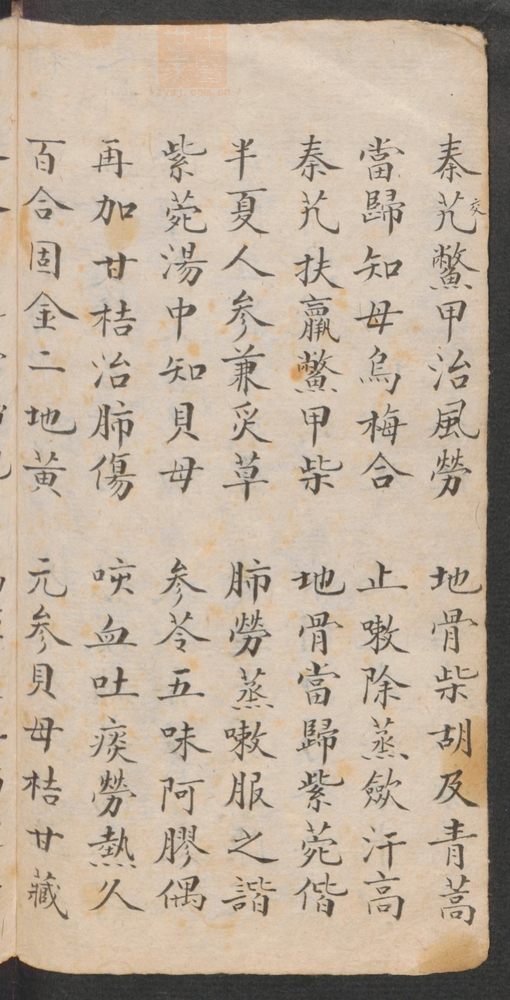 秦艽鱉甲治風勞　地骨柴胡及青蒿
交
當歸知母烏梅合　止嗽除蒸斂汗高
秦艽扶羸鱉甲柴　地骨當歸紫菀偕
半夏人参兼炙草　肺勞蒸嗽服之諧
紫菀湯中知貝母　参苓五味阿膠偶
再加甘桔治肺傷　咳血吐痰勞熱久
百合固金二地黃　元参貝母桔甘藏